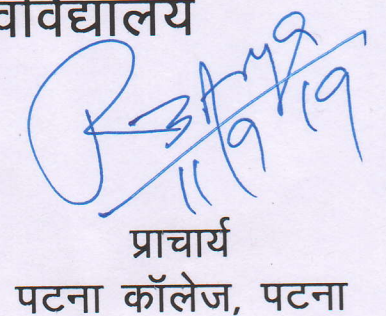 वविद्यालय
11/9/19
प्राचार्य
पटना कॉलेज, पटना